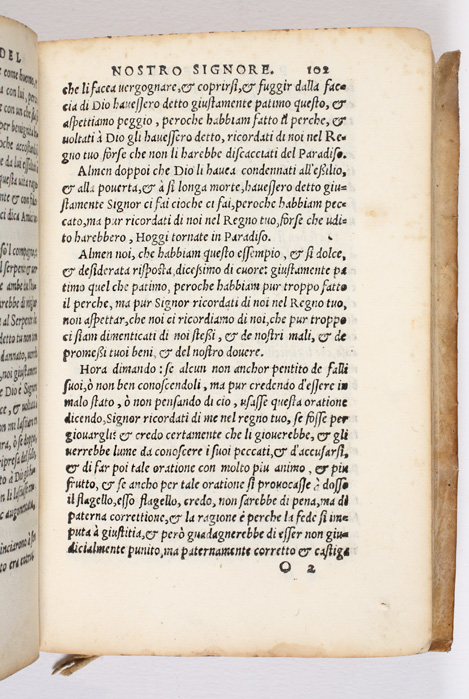 DEL
NOSTRO SIGNORE. 102
che li facea vergognare,& coprirsi,& fuggir dalla fac=
cia di Dio havessero detto giustamente patimo questo, &
aspettiamo peggio, peroche habbiam fatto il perche, &
voltati à Dio gli havessero detto, ricordati di noi nel Re=
gno tuo forse che non li harebbe discacciati del Paradiso.
Almen doppoi che Dio li havea condennati all'essilio,
& alla pouerta,& à sì longa morte,havessero detto giu=
stamente Signor ci fai cioche ci fai,peroche habbiam pec=
cato,ma pur ricordati di noi nel Regno tuo,forse che udi=
to harebbero , Hoggi tornate in Paradiso.
Almen noi, che habbiam questo essempio , & sì dolce,
& desiderata risposta,dicessimo di cuore: giustamente pa
timo quel che patimo, peroche habbiam pur troppo fatto
il perche, ma pur Signor ricordati di noi nel Regno tuo,
non aspettar,che noi ci ricordiamo di noi,che pur troppo
ci siam dimenticati di noi stessi, & de nostri mali, & de
promessi tuoi beni, & del nostro dovere.
Hora dimando : se alcun non anchor pentito de falli
suoi,ò non ben conoscendoli, ma pur credendo d'essere in
malo stato , ò non pensando di cio, usasse questa oratione
dicendo,Signor ricordati di me nel regno tuo, se fosse per
giouargli: & credo certamente che li giouerebbe, & gli
verrebbe lume da conoscere i suoi peccati,& d'accusarsi,
& di far poi tale oratione con molto piu animo , & piu
frutto, & se ancho per tale oratione si provocasse à dosso
il flagello,esso flagello, credo, non sarebbe di pena,ma di
paterna correttione,& la ragione è perche la fede si im=
puta à giustitia,& però guadagnerebbe di esser non giu=
dicialmente punito,ma paternamente corretto & castiga
O 2